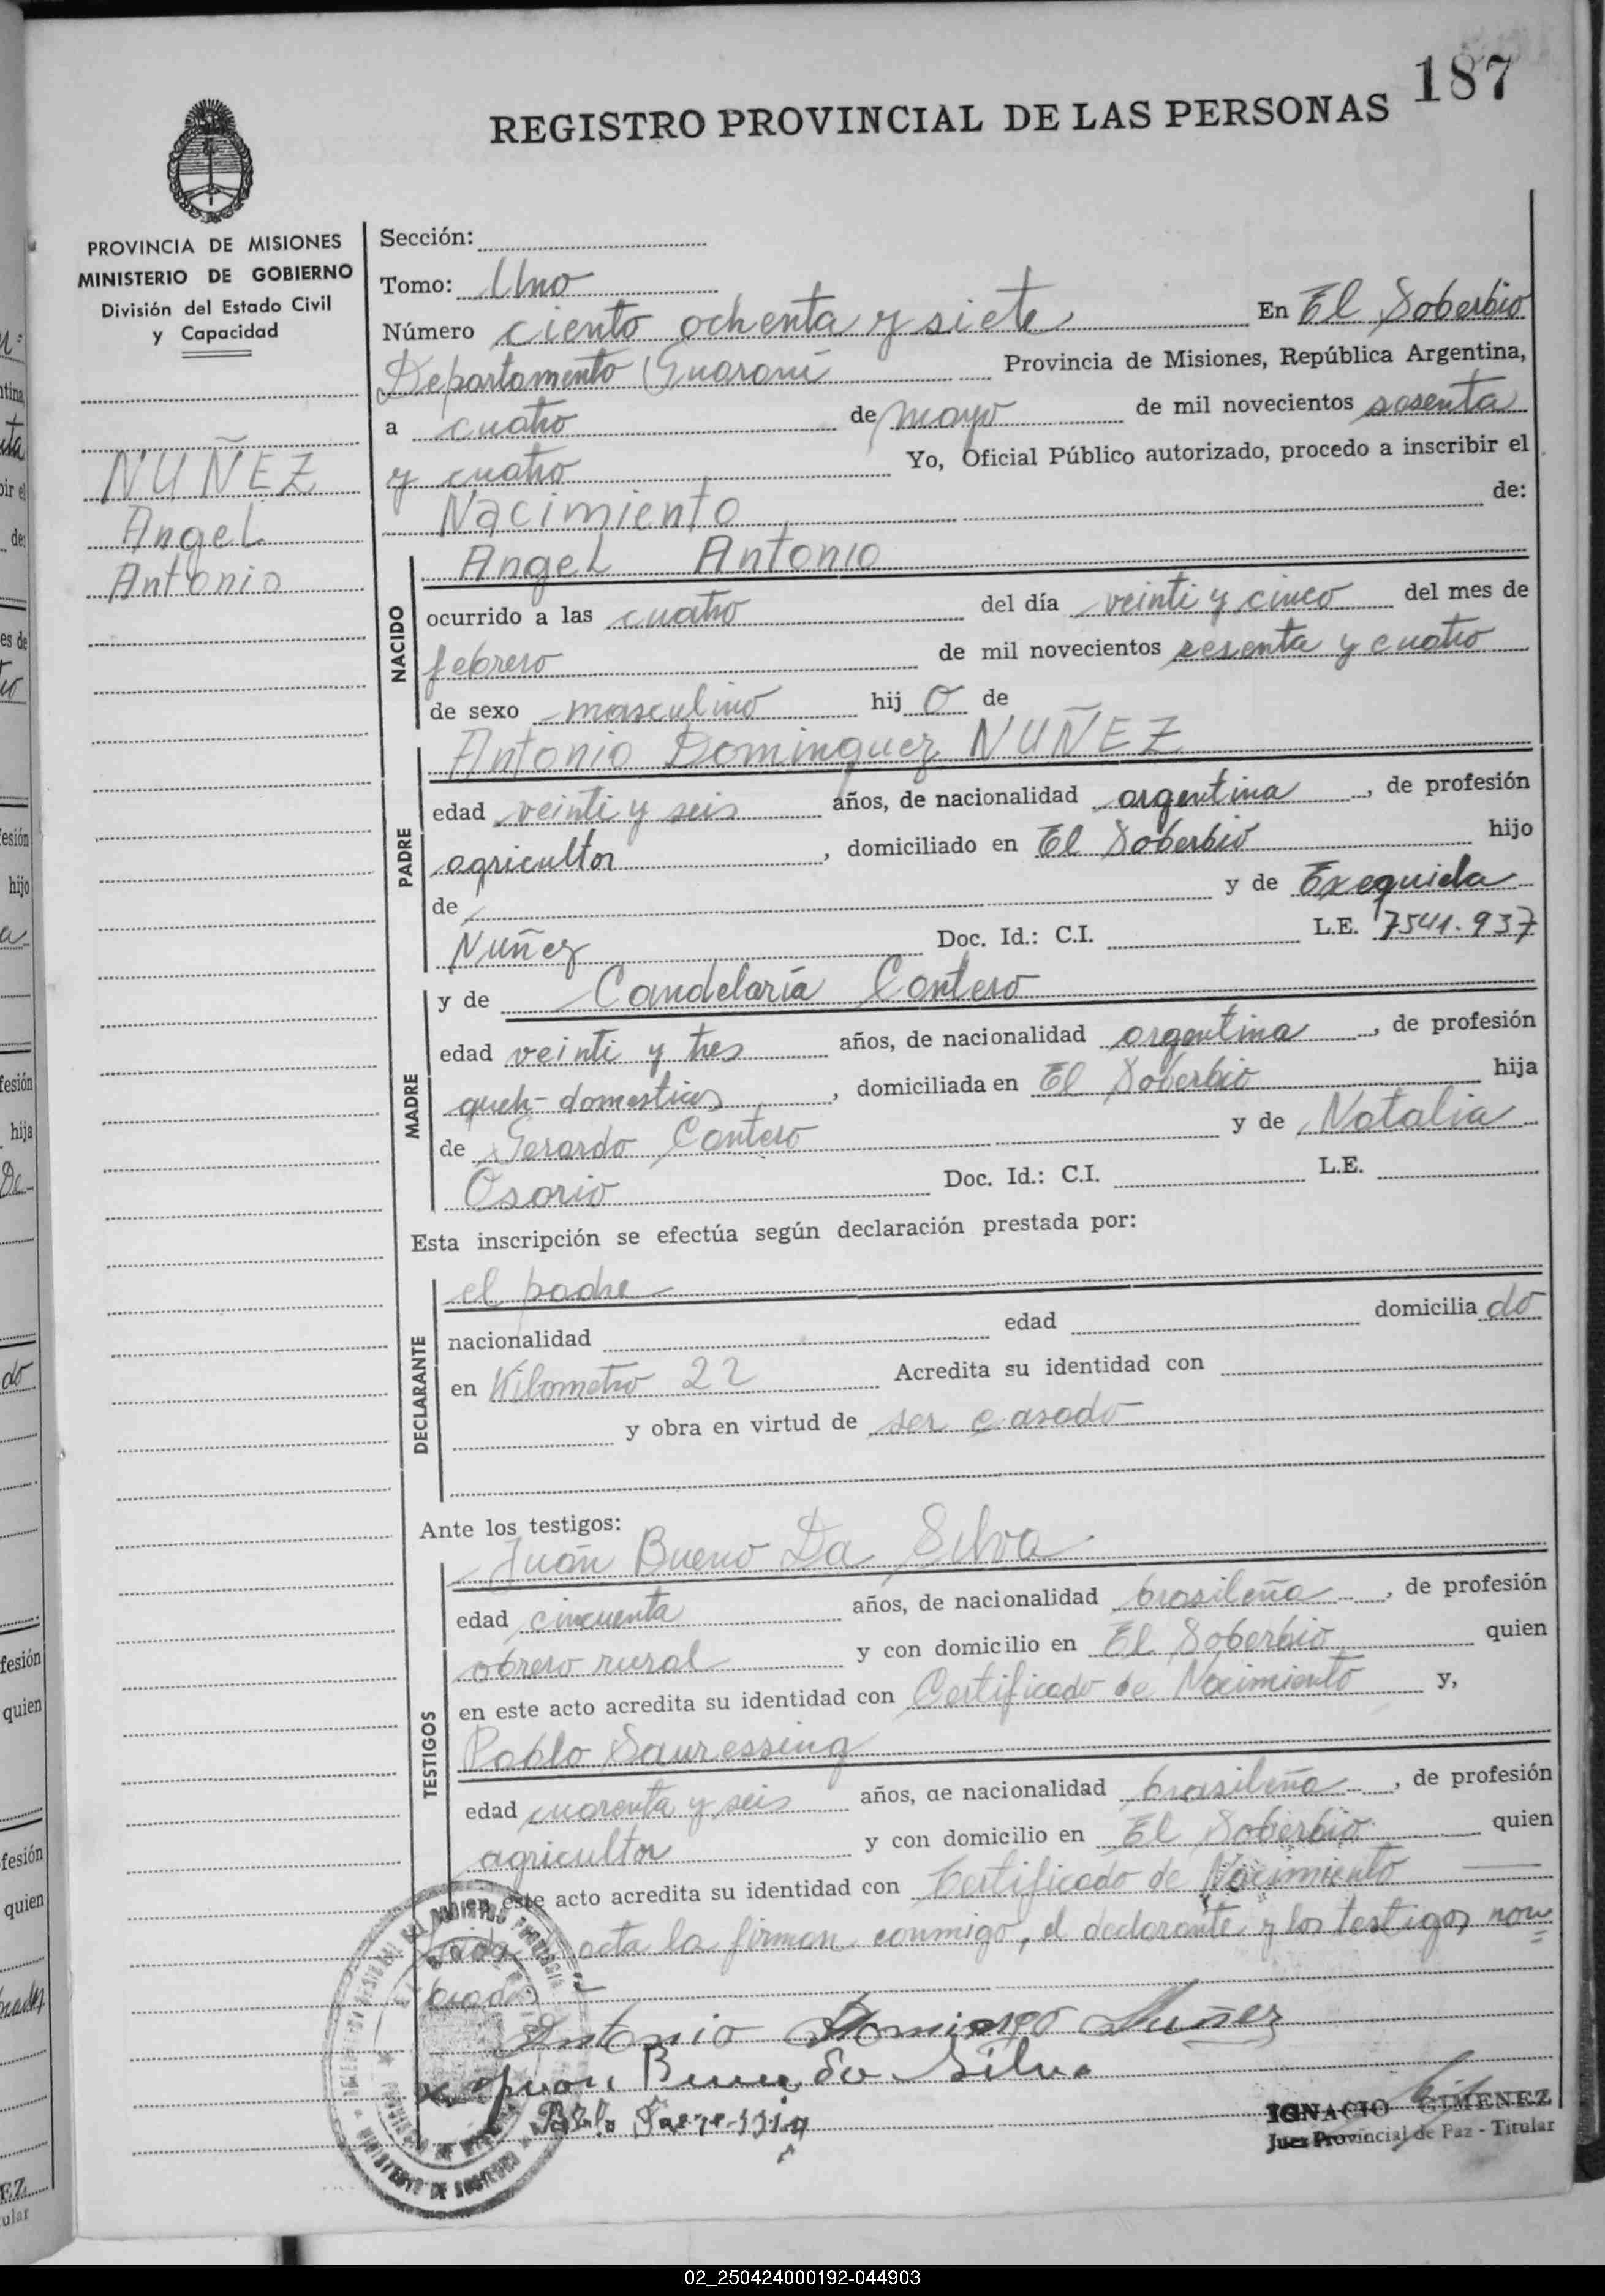 187
REGISTRO PROVINCIAL DE LAS PERSONAS
PROVINCIA DE MISIONES
MINISTERIO DE GOBIERNO
División del Estado Civil
y Capacidad
NUÑEZ
Angel
Antonio
Sección:
Tomo: Uno
Número ciento ochenta y siete En El Soberbio
Departamento Guaraní Provincia de Misiones, República Argentina,
a cuatro de mayo de mil novecientos sesenta
y cuatro Yo, Oficial Público autorizado, procedo a inscribir el
Nacimiento de:
NACIDO
Angel Antonio
ocurrido a las cuatro del día veinti y cinco del mes de
febrero de mil novecientos sesenta y cuatro
de sexo masculino hij o de
PADRE
Antonio Dominguez NUÑEZ
edad veinti y seis años, de nacionalidad argentina, de profesión
agricultor, domiciliado en El Soberbio hijo
de y de Exequiela
Nuñez Doc. Id.: C.I. L.E. 7541.937
MADRE
y de Candelaría Contero
edad veinti y tres años, de nacionalidad argentina, de profesión
queh-domesticos, domiciliada en El Soberbio hija
de Gerardo Contero y de Natalia
Osorio Doc. Id.: C.I. L.E.
Esta inscripción se efectúa según declaración prestada por:
DECLARANTE
el padre
nacionalidad edad domicilia do
en Kilometro 22 Acredita su identidad con
y obra en virtud de ser casado
Ante los testigos:
TESTIGOS
Juan Bueno Da Silva
edad cincuenta años, de nacionalidad brasileña, de profesión
obrero rural y con domicilio en El Soberbio quien
en este acto acredita su identidad con Certificado de Nacimiento y,
Pablo Sauressing
edad cuarenta y seis años, de nacionalidad brasileña, de profesión
agricultor y con domicilio en El Soberbio quien
en este acto acredita su identidad con Certificado de Nacimiento
acta la firman conmigo, el declarante y los testigos nom=
brados
Antonio Domingo Nuñez
x Juan Bueno da Silva
Pablo Sauressing
IGNACIO GIMENEZ
Juez Provincial de Paz - Titular
02_250424000192-044903